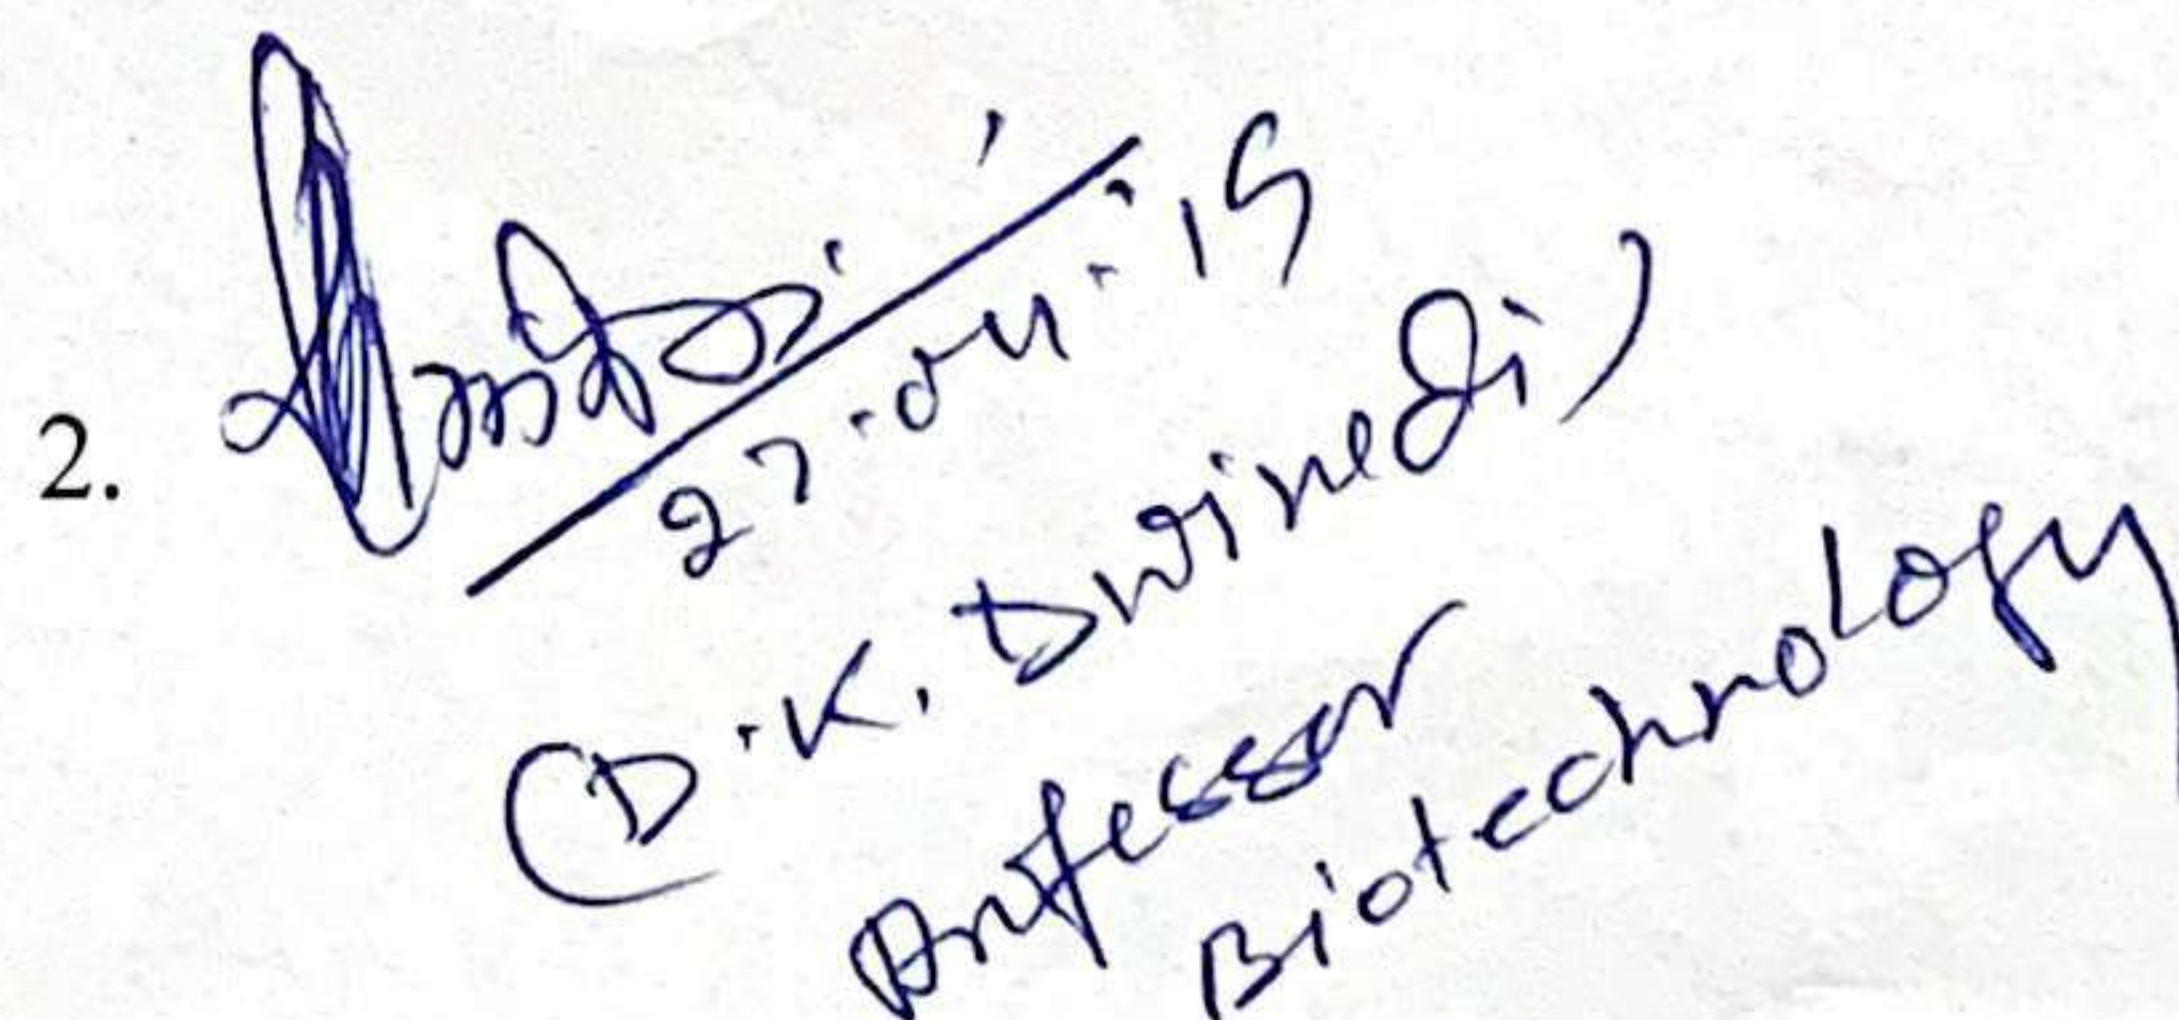 2.
27.04.19
(D.K. Dwivedi)
Professor
Biotechnology